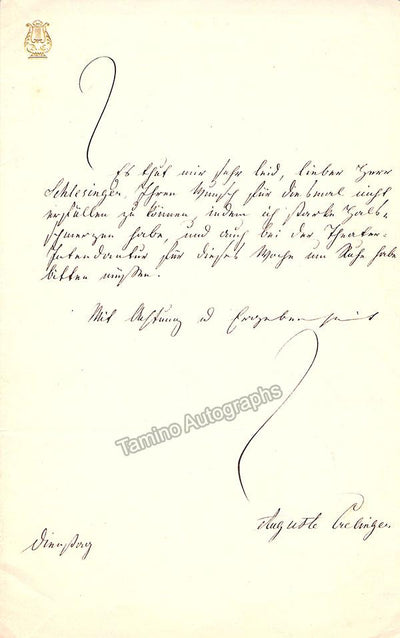 Es thut mir sehr leid, lieber Herr
Schlesinger, Ihren Wunsch für diesmal nicht
erfüllen zu können, indem ich starke Hals-
schmerzen habe, und auch bei der Theater-
Intendantur für diese Woche um Ruhe habe
bitten müssen.
Mit Achtung u Ergebenheit
Tamino Autographs
Auguste Crelinger
Dienstag